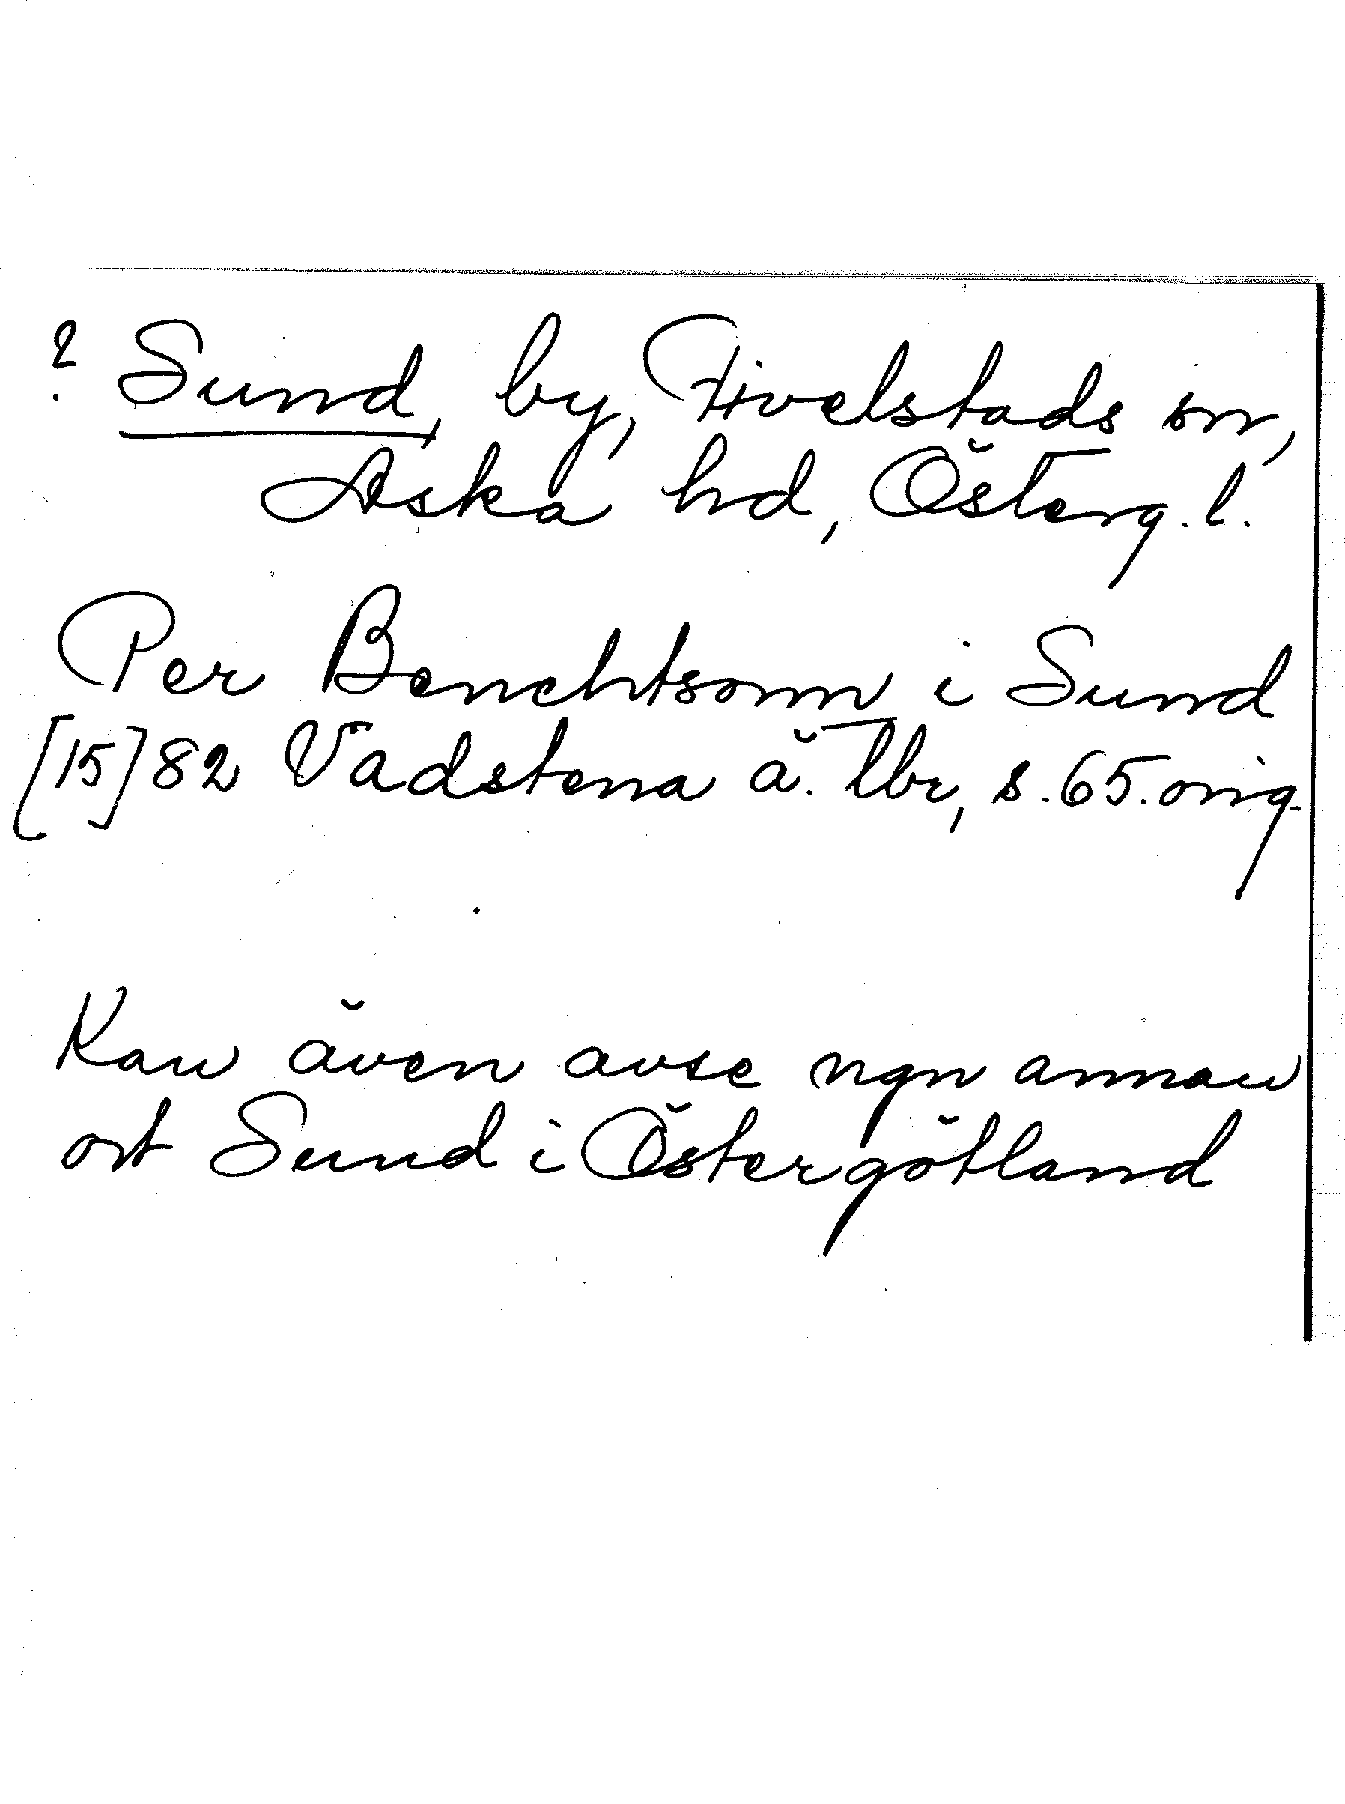 ? Sund, by, Fivelstads sn,
Aska hd, Österg. l.
Per Benchtsonn i Sund
[15]82 Vadstena ä. tbr, s. 65. orig.
Kan även avse ngn annan
ort Sund i Östergötland